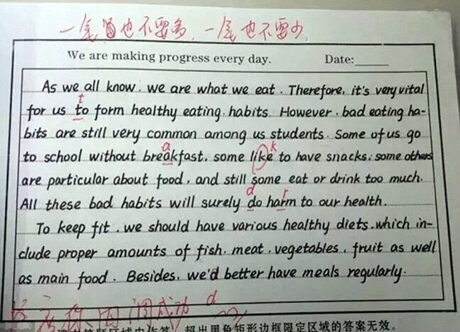 也不要多 一笔也不要少
We are making progress every day. Date:
t
As we all know, we are what we eat. Therefore, it's very vital
for us to form healthy eating habits. However, bad eating ha-
bits are still very common among us students. Some of us go
a k
to school without breakfast, some like to have snacks, some others
are particular about food, and still some eat or drink too much.
d r
All these bad habits will surely do harm to our health.
To keep fit, we should have various healthy diets, which in-
clude proper amounts of fish, meat, vegetables, fruit as well
as main food. Besides, we'd better have meals regularly.
d
超出黑色矩形边框限定区域的答案无效。